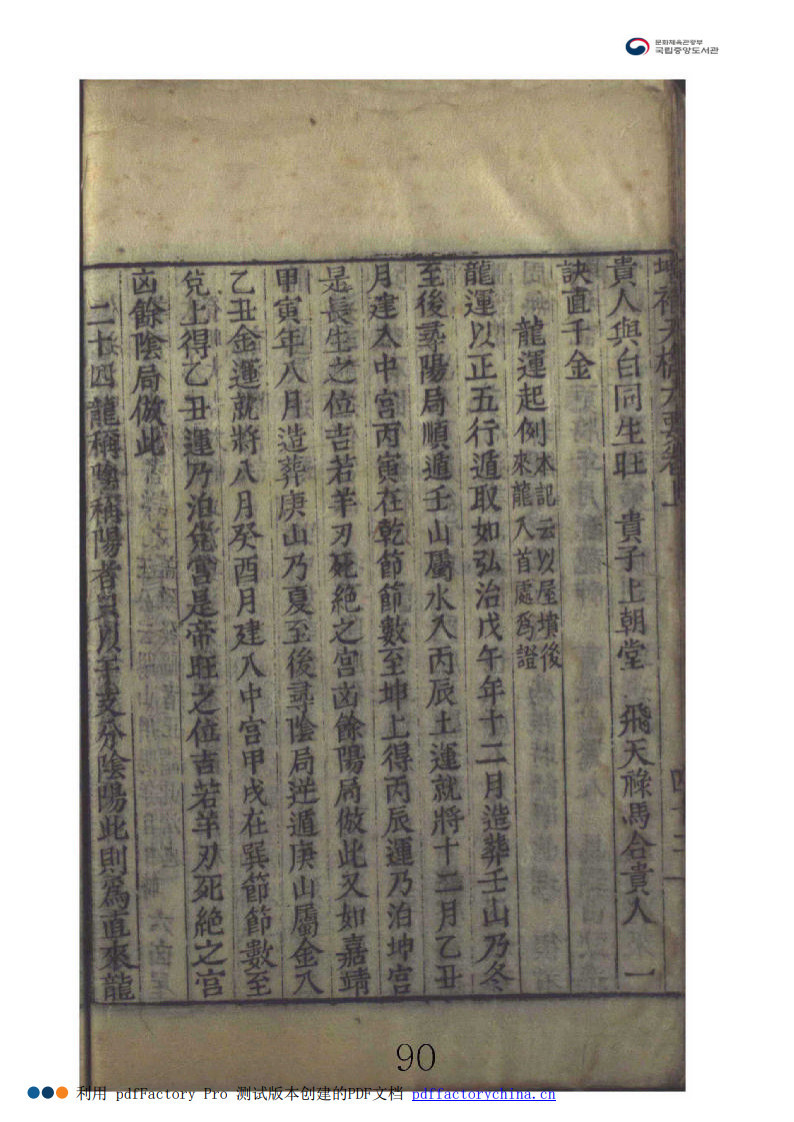 문화체육관광부
국립중앙도서관
貴人與白同生旺 貴子上朝堂 飛天祿馬合貴人 一
訣直千金
龍運起例本記云以屋墳後
來龍入首處爲證
龍運以正五行遁取如弘治戊午年十二月造葬壬山乃冬
至後尋陽局順遁壬山屬水入丙辰土運就將十二月乙丑
月建入中宮丙寅在乾節節數至坤上得丙辰運乃泊坤宮
是長生之位吉若羊刃死絕之宮凶餘陽局倣此又如嘉靖
甲寅年八月造葬庚山乃夏至後尋陰局逆遁庚山屬金入
乙丑金運就將八月癸酉月建入中宮甲戌在巽節節數至
兌上得乙丑運乃泊兌宮是帝旺之位吉若羊刃死絕之宮
凶餘陰局倣此
二十四龍稱陰稱陽者只以干支分陰陽此則爲直來龍
90
利用 pdfFactory Pro 测试版本创建的PDF文档 pdffactorychina.cn